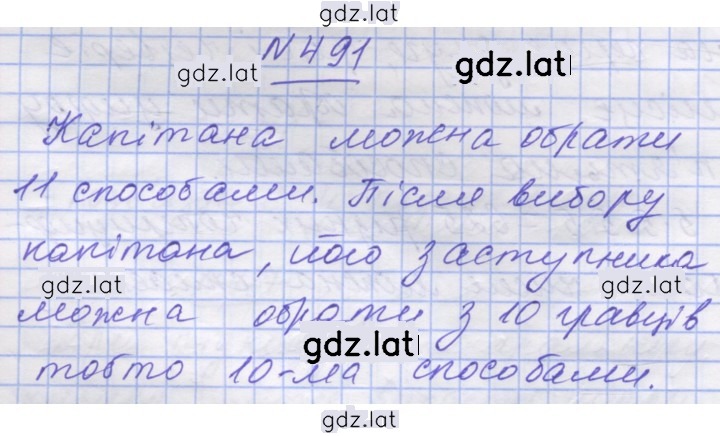 gdz.lat
N 491
gdz.lat gdz.lat
Капітана можна обрати
11 способами. Після вибору
капітана, його заступника
gdz.lat gdz.lat
можна обрати з 10 гравців
gdz.lat
тобто 10-ма способами.
gdz.lat